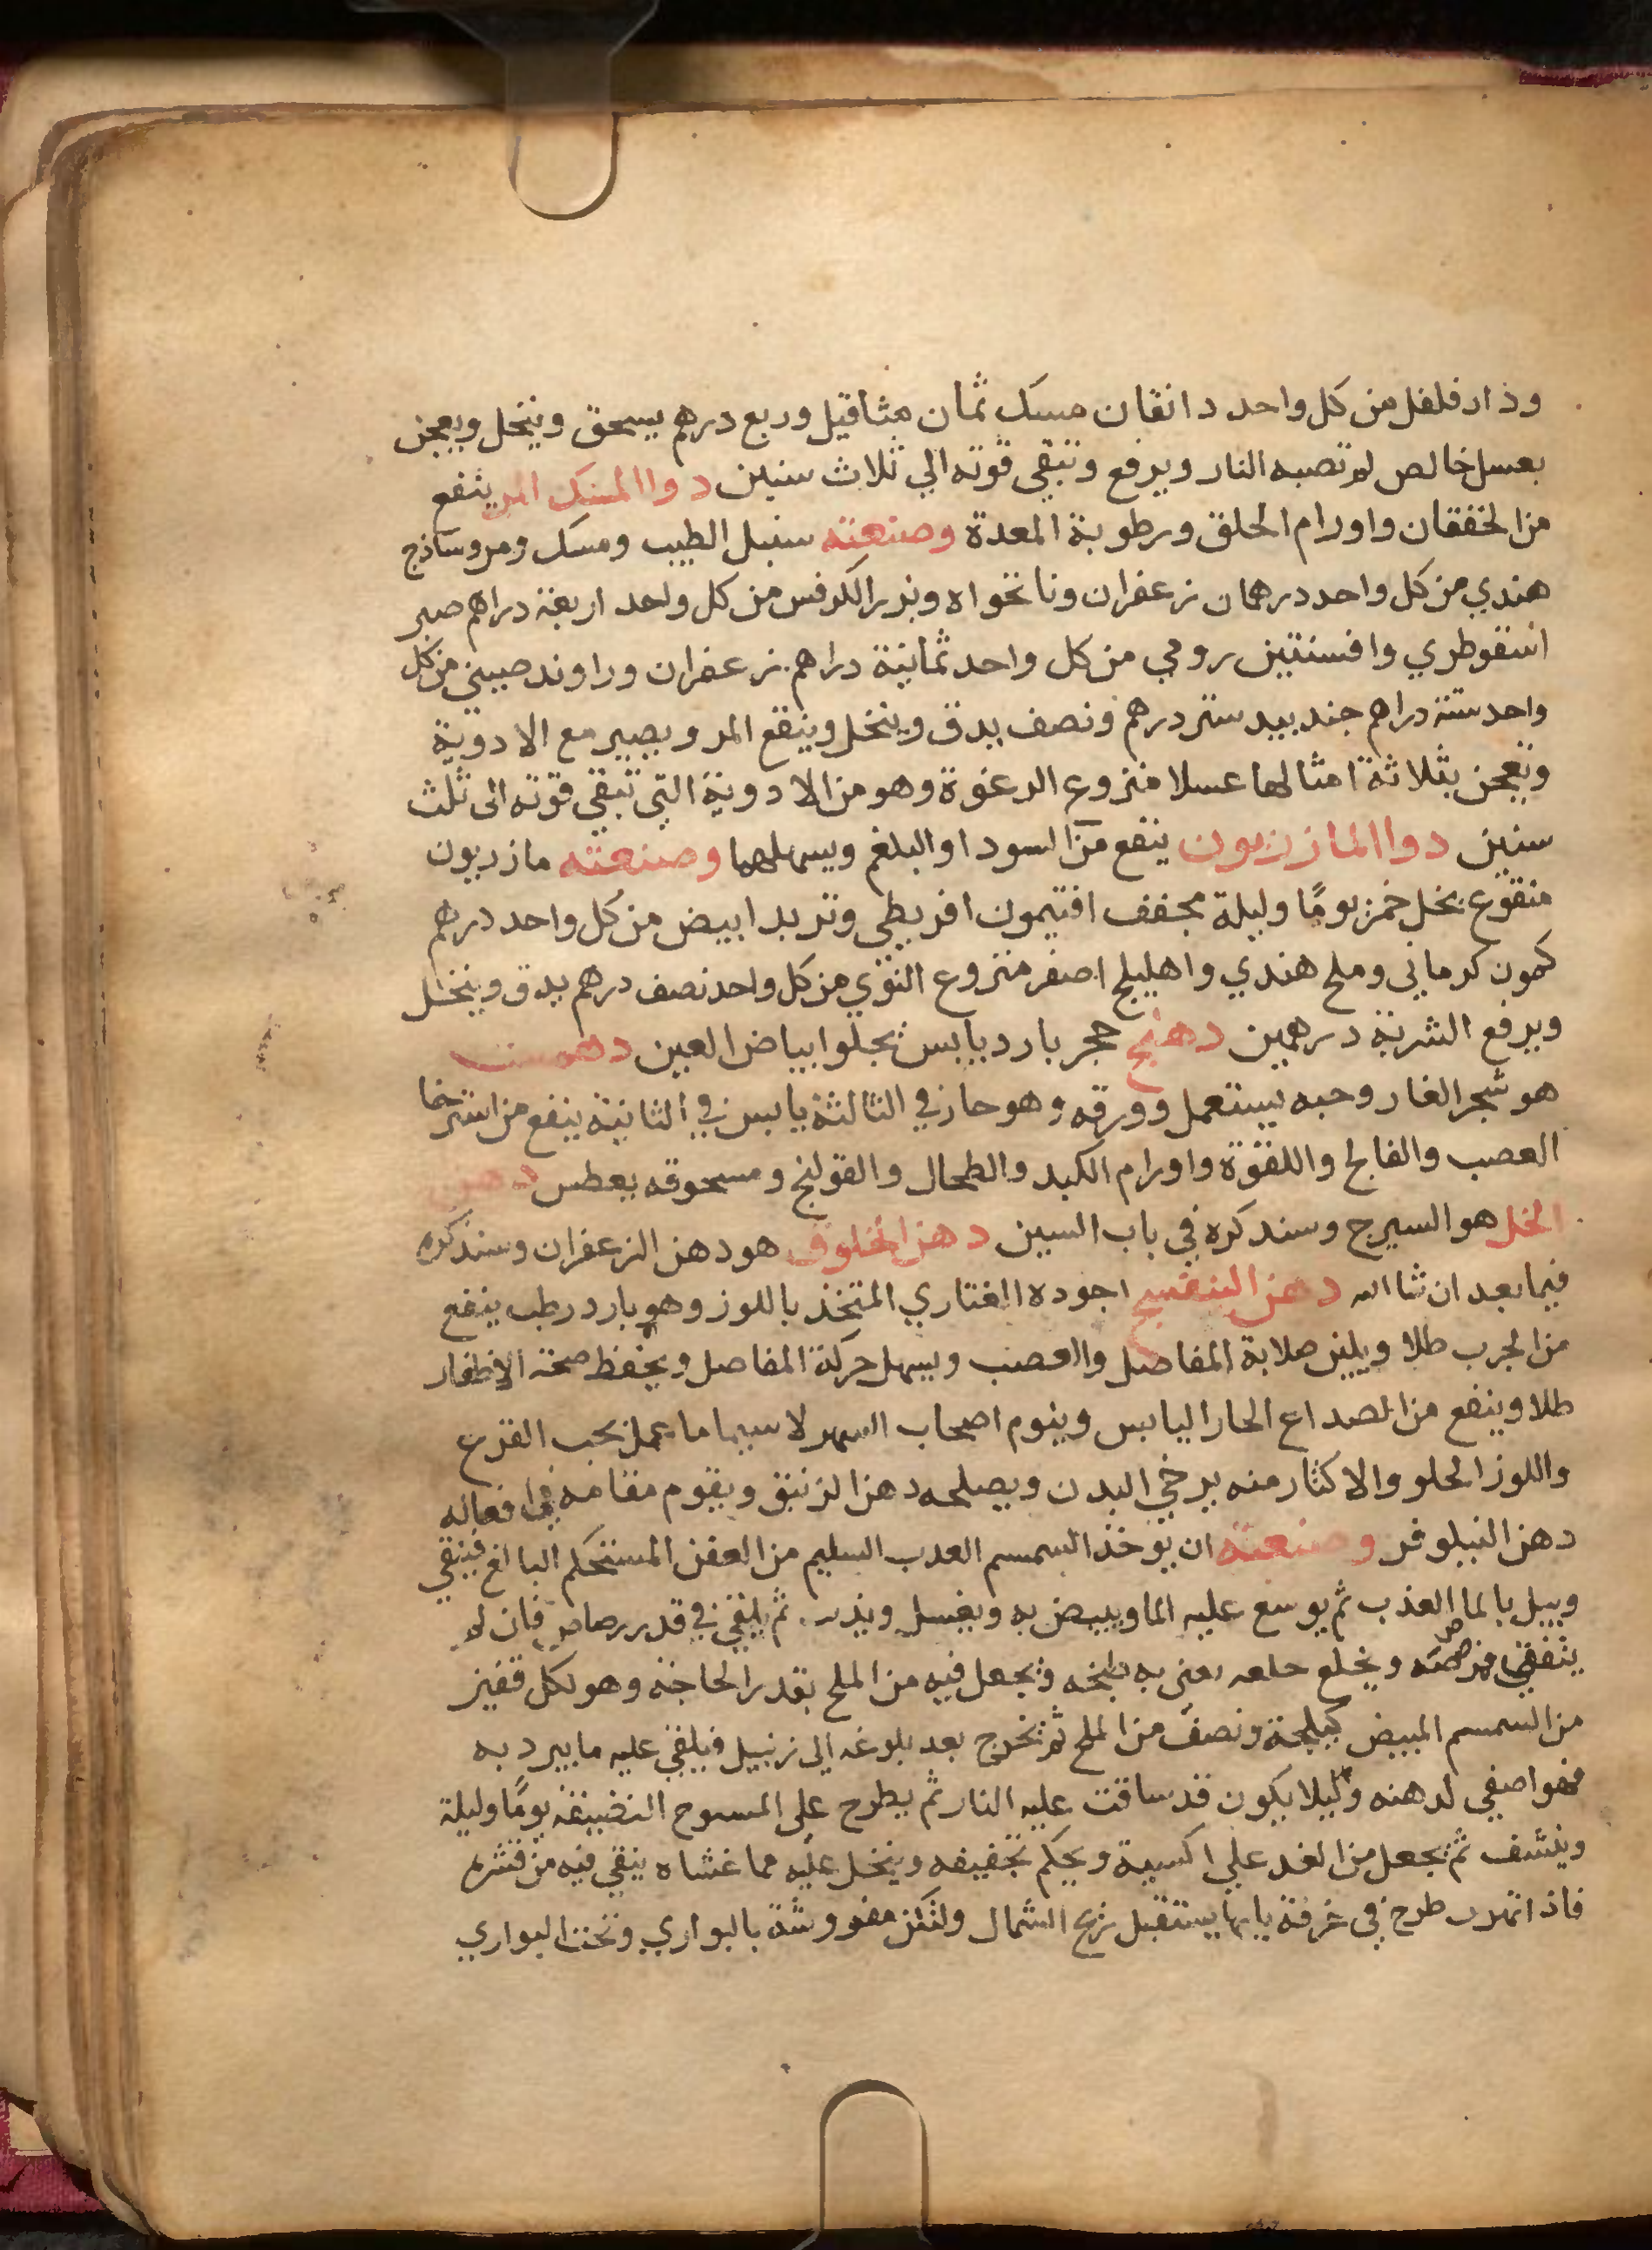 وذارفلفل من كل واحد دانقان مسك ثمان مثاقيل وربع درهم يسحق وينخل ويعجن
بعسل خالص لم تصبه النار ويرفع وتبقى قوته الي ثلاث سنين دوا المسك المر ينفع
من الخفقان واورام الحلق ورطوبة المعدة وصنعته سنبل الطيب ومسك ومر وساذج
هندي من كل واحد درهمان زعفران ونانخواه وبزر الكرفس من كل واحد اربعة دراهم صبر
اسقوطري وافسنتين رومي من كل واحد ثمانية دراهم زعفران وراوند صيني من كل
واحد ستة دراهم جندبيدستر درهم ونصف يدق وينخل وينقع المر ويصير مع الادوية
وتعجن بثلاثة امثالها عسلا منزوع الرغوة وهو من الادوية التي تبقي قوته الى ثلث
سنين دوا المازريون ينفع من السودا والبلغم ويسهلهما وصنعته مازريون
منقوع بخل خمر يومًا وليلة مجفف افتيمون افريطي وتربد ابيض من كل واحد درهم
كمون كرماني وملح هندي واهليلج اصفر منزوع النوي من كل واحد نصف درهم يدق وينخل
ويرفع الشربة درهمين دهنج حجر بارد يابس يجلوا بياض العين دهمست
هو شجر الغار وحبه يستعمل وورقه وهو حار في الثالثة يابس في الثانية ينفع من استرخا
العصب والفالج واللقوة واورام الكبد والطحال والقولنج ومسحوقه يعطس دهن
الخل هو السيرج وسنذكره في باب السين دهن الخلوق هو دهن الزعفران وسنذكره
فيما بعد ان شا الله دهن البنفسج اجوده المتخذ باللوز وهو بارد رطب ينفع
من الجرب طلا ويلين صلابة المفاصل والعصب ويسهل حركة المفاصل ويحفظ صحة الاظفار
طلا وينفع من الصداع الحار اليابس وينوم اصحاب السهر لا سيما ما عمل بحب القرع
واللوز الحلو والاكثار منه يرخي البدن ويصلحه دهن الزنبق ويقوم مقامه في افعاله
دهن النيلوفر وصنعته ان يوخذ السمسم العذب السليم من العفن المستحكم البالغ فينقي
ويبل بالما العذب ثم يوسع عليه الما ويبيض به ويغسل ثم يلقي في قدر رصاص فان لم
يتفق ويجعل فيه من الملح بقدر الحاجة وهو لكل قفيز
من السمسم المبيض كيلجة ونصف من الملح ثم يخرج بعد بلوغه الى زنبيل فيلقي عليه ما يبرد به
فهو اصفي لدهنه وليلا يكون قد ساقت عليه النار ثم يطرح على المسوح النضيفه يومًا وليلة
وينشف ثم يجعل من الغد علي اكسية ويحكم تجفيفه وينخل عليه مما غشاه ينقي فيه من قشره
فاذا طرح في غرفة بابها يستقبل ريح الشمال ولتكن مفروشة بالبواري وتحت البواري